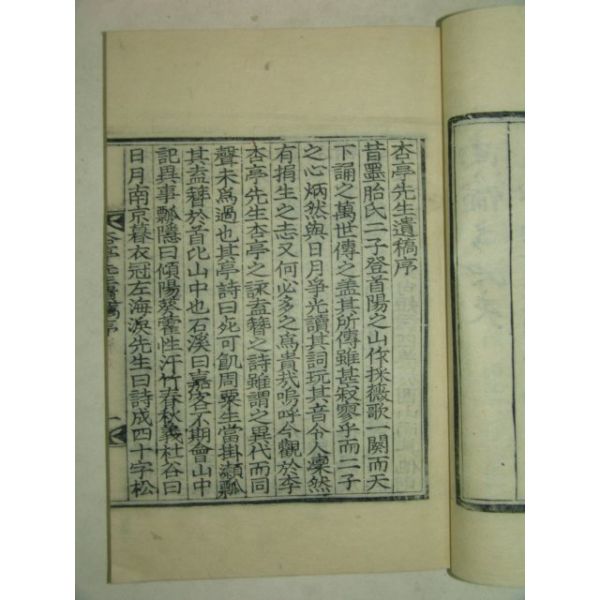 杏亭先生遺稿序
昔墨胎氏二子登首陽之山作採薇歌一闋而天
下誦之萬世傳之盖其所傳雖甚寂寥乎而二子
之心炳然與日月爭光讀其詞玩其音令人凜然
有捐生之志又何必多之爲貴哉嗚呼今觀於李
杏亭先生杏亭之詠盍簪之詩雖謂之異代而同
聲未爲過也其亭詩曰死可飢周粟生當掛瀬瓢
其盍簪於首比山中也石溪曰嘉客不期會山中
記異事瓢隱曰傾陽葵藿性汗竹春秋義杜谷曰
日月南京暮衣冠左海淚先生曰詩成四十字松
杏亭先生遺稿序
一